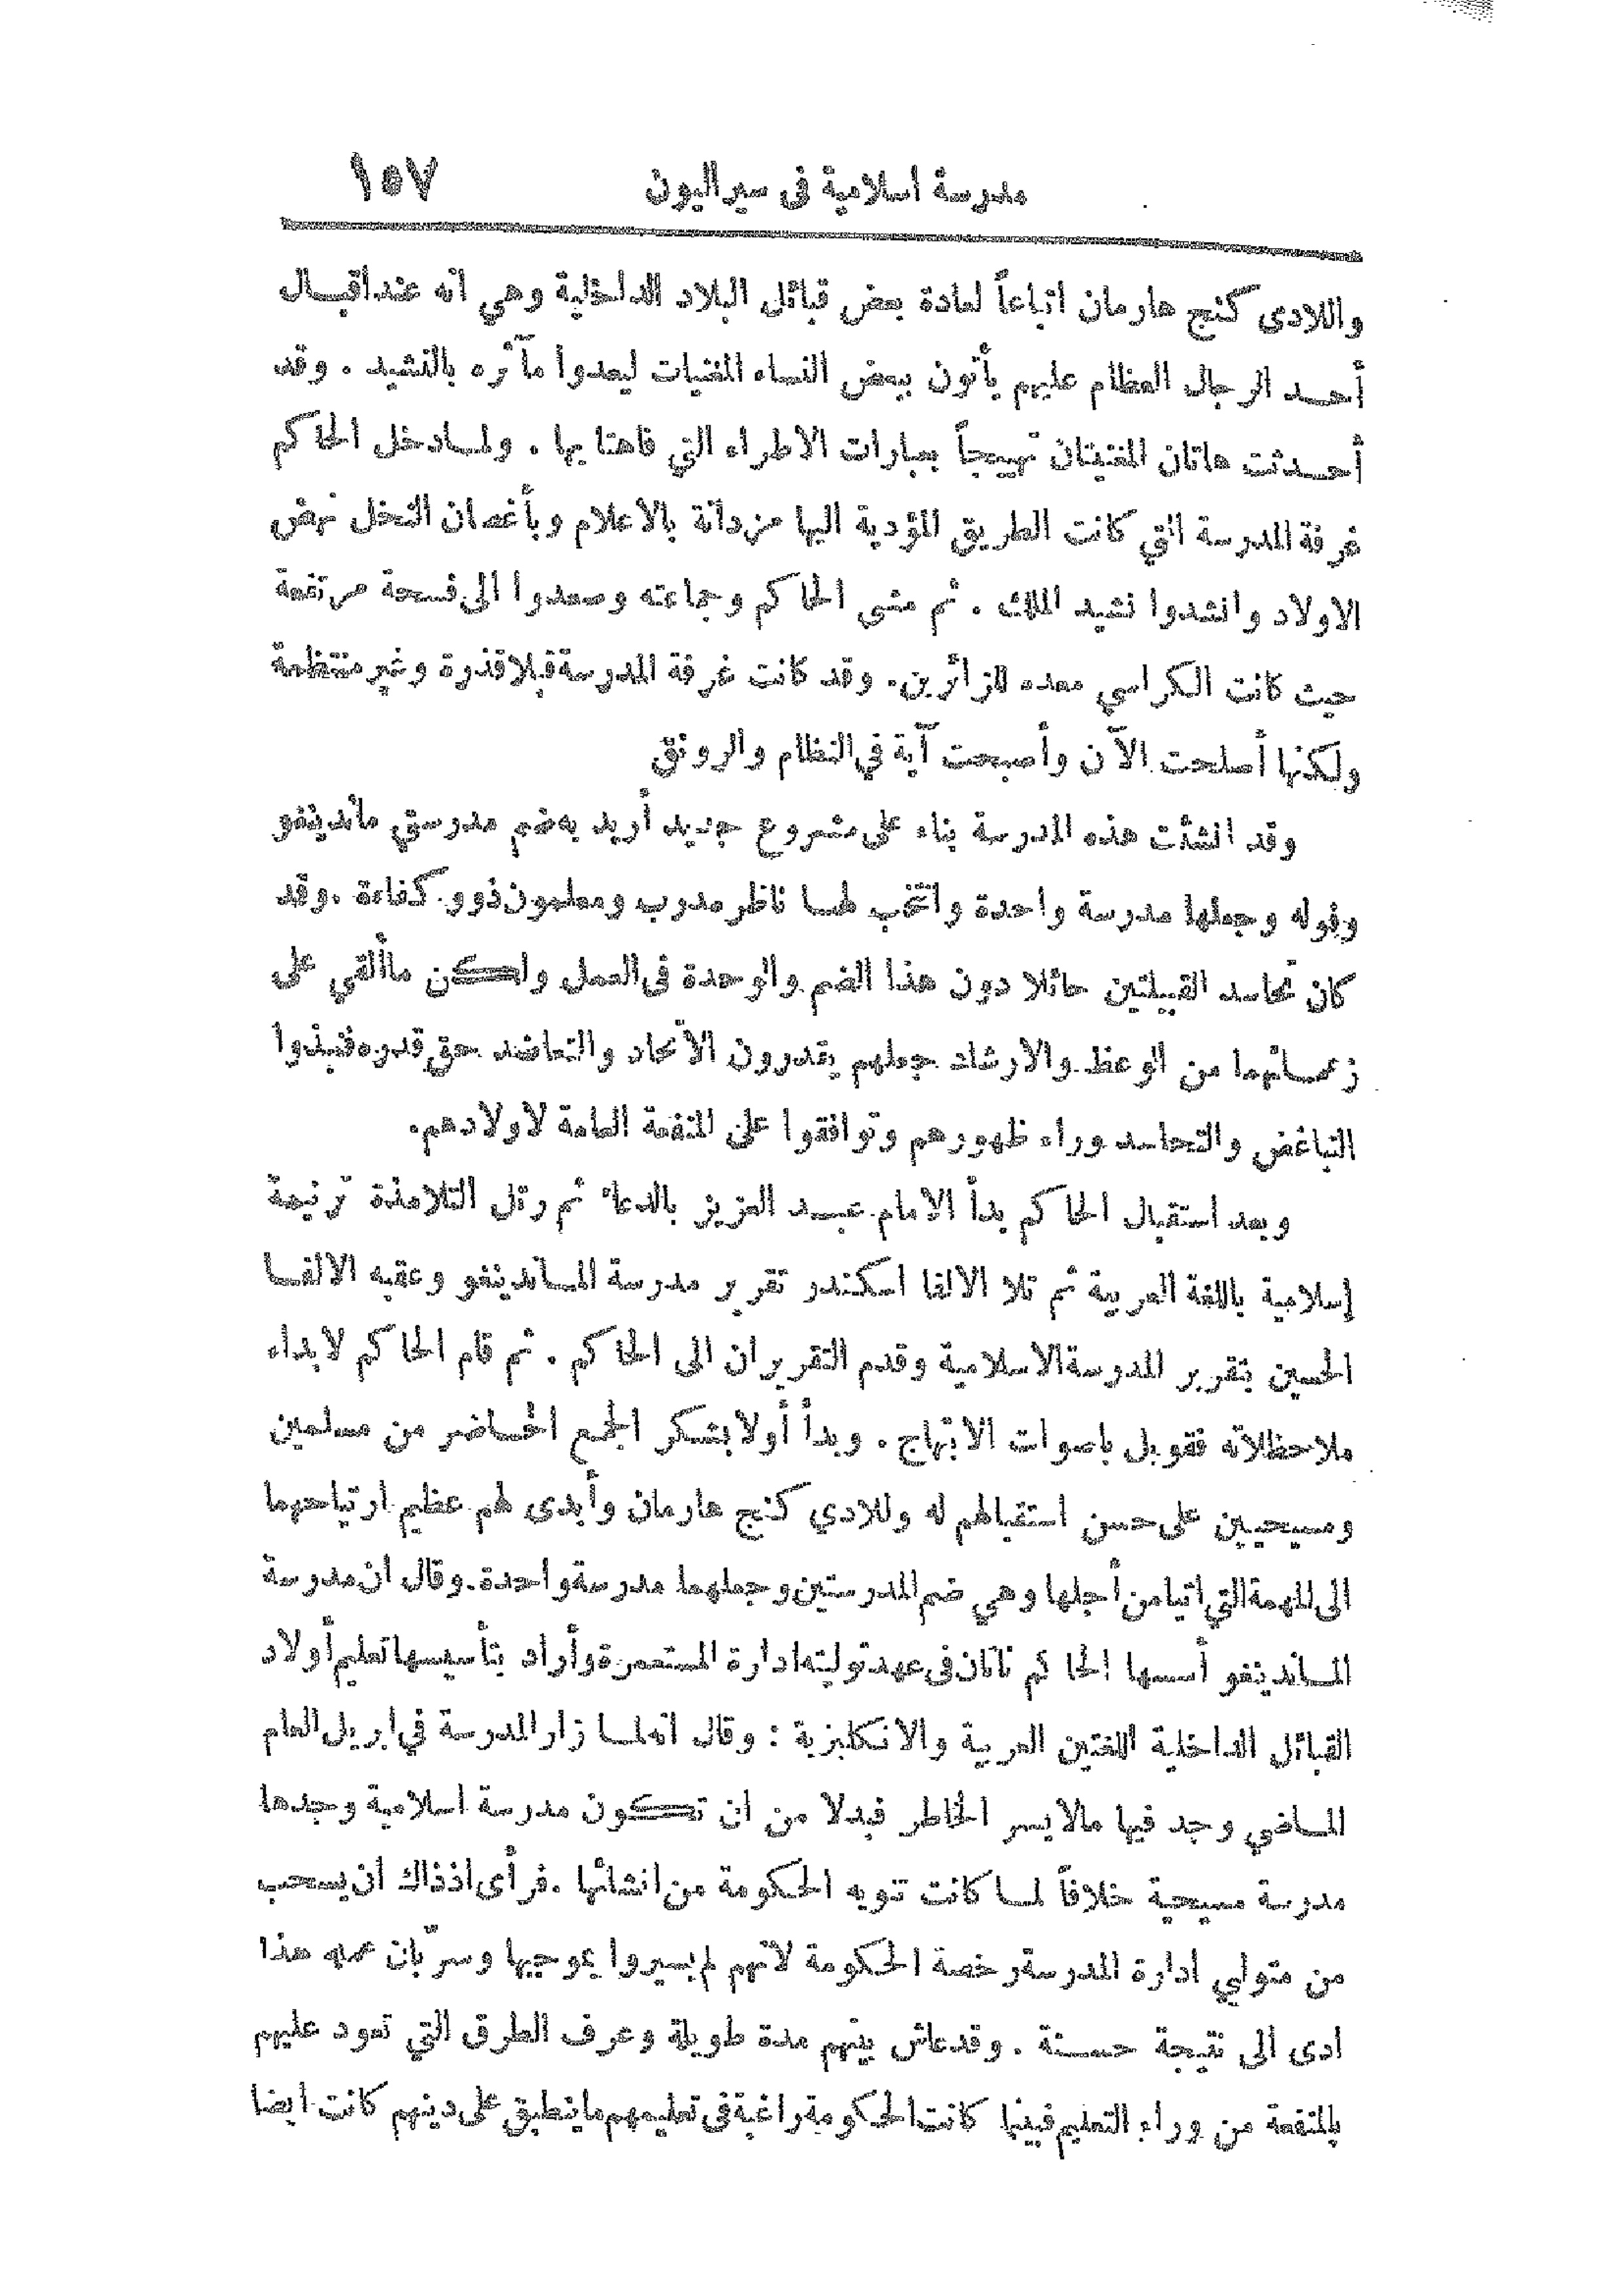 مدرسة اسلامية فى سيراليون ١٥٧
واللادى كنج هارمان اتباعاً لعادة بعض قبائل البلاد الداخلية وهي انه عند اقبال
أحد الرجال العظام عليهم يأتون ببعض النساء المغنيات ليعدوا مآثره بالنشيد . وقد
أحدثت هاتان المغنيتان تهييجاً بعبارات الاطراء التي فاهتا بها . ولما دخل الحاكم
غرفة المدرسة التي كانت الطريق المؤدية اليها مزدانة بالاعلام وبأغصان النخل نهض
الاولاد وانشدوا نشيد الملك . ثم مشى الحاكم وجماعته وصعدوا الى فسحة مرتفعة
حيث كانت الكراسي معده للزائرين. وقد كانت غرفة المدرسة قبلا قذرة وغير منتظمة
ولكنها أصلحت الآن وأصبحت آية في النظام والرونق
وقد انشئت هذه المدرسة بناء على مشروع جديد أريد به ضم مدرستي ماندينغو
وفوله وجعلها مدرسة واحدة وانتخب لها ناظر مدرب ومعلمون ذوو كفاءة .وقد
كان تحاسد القبيلتين حائلا دون هذا الضم والوحدة فى العمل ولكن ما ألقي على
زعمائهما من الوعظ والارشاد جعلهم يقدرون الاتحاد والتعاضد حق قدره فنبذوا
التباغض والتحاسد وراء ظهورهم وتوافقوا على المنفعة العامة لاولادهم.
وبعد استقبال الحاكم بدأ الامام عبد العزيز بالدعاء ثم رتل التلامذة ترنيمة
إسلامية باللغة العربية ثم تلا الالفا اسكندر تقرير مدرسة الماندينغو وعقبه الالفا
الحسين بتقرير المدرسة الاسلامية وقدم التقريران الى الحاكم . ثم قام الحاكم لابداء
ملاحظلاته فقوبل باصوات الابتهاج . وبدأ أولا بشكر الجمع الحاضر من مسلمين
ومسيحيين على حسن استقبالهم له وللادي كنج هارمان وأبدى لهم عظيم ارتياحهما
الى المهمة التي اتيا من أجلها وهي ضم المدرستين وجعلهما مدرسة واحدة. وقال ان مدرسة
الماندينغو أسسها الحاكم ناتان فى عهد توليته ادارة المستعمرة وأراد بتأسيسها تعليم أولاد
القبائل الداخلية اللغتين العربية والانكليزية : وقال انه لما زار المدرسة في ابريل العام
الماضي وجد فيها مالا يسر الخاطر فبدلا من ان تكون مدرسة اسلامية وجدها
مدرسة مسيحية خلافاً لما كانت تنويه الحكومة من انشائها .فرأى اذذاك ان يسحب
من متولي ادارة المدرسة رخصة الحكومة لانهم لم يسيروا بموجبها وسرّ بان عمله هذا
ادى الى نتيجة حسنة . وقد عاش بينهم مدة طويلة وعرف الطرق التي تعود عليهم
بالمنفعة من وراء التعليم فبينما كانت الحكومة راغبة فى تعليمهم ما ينطبق على دينهم كانت ايضا